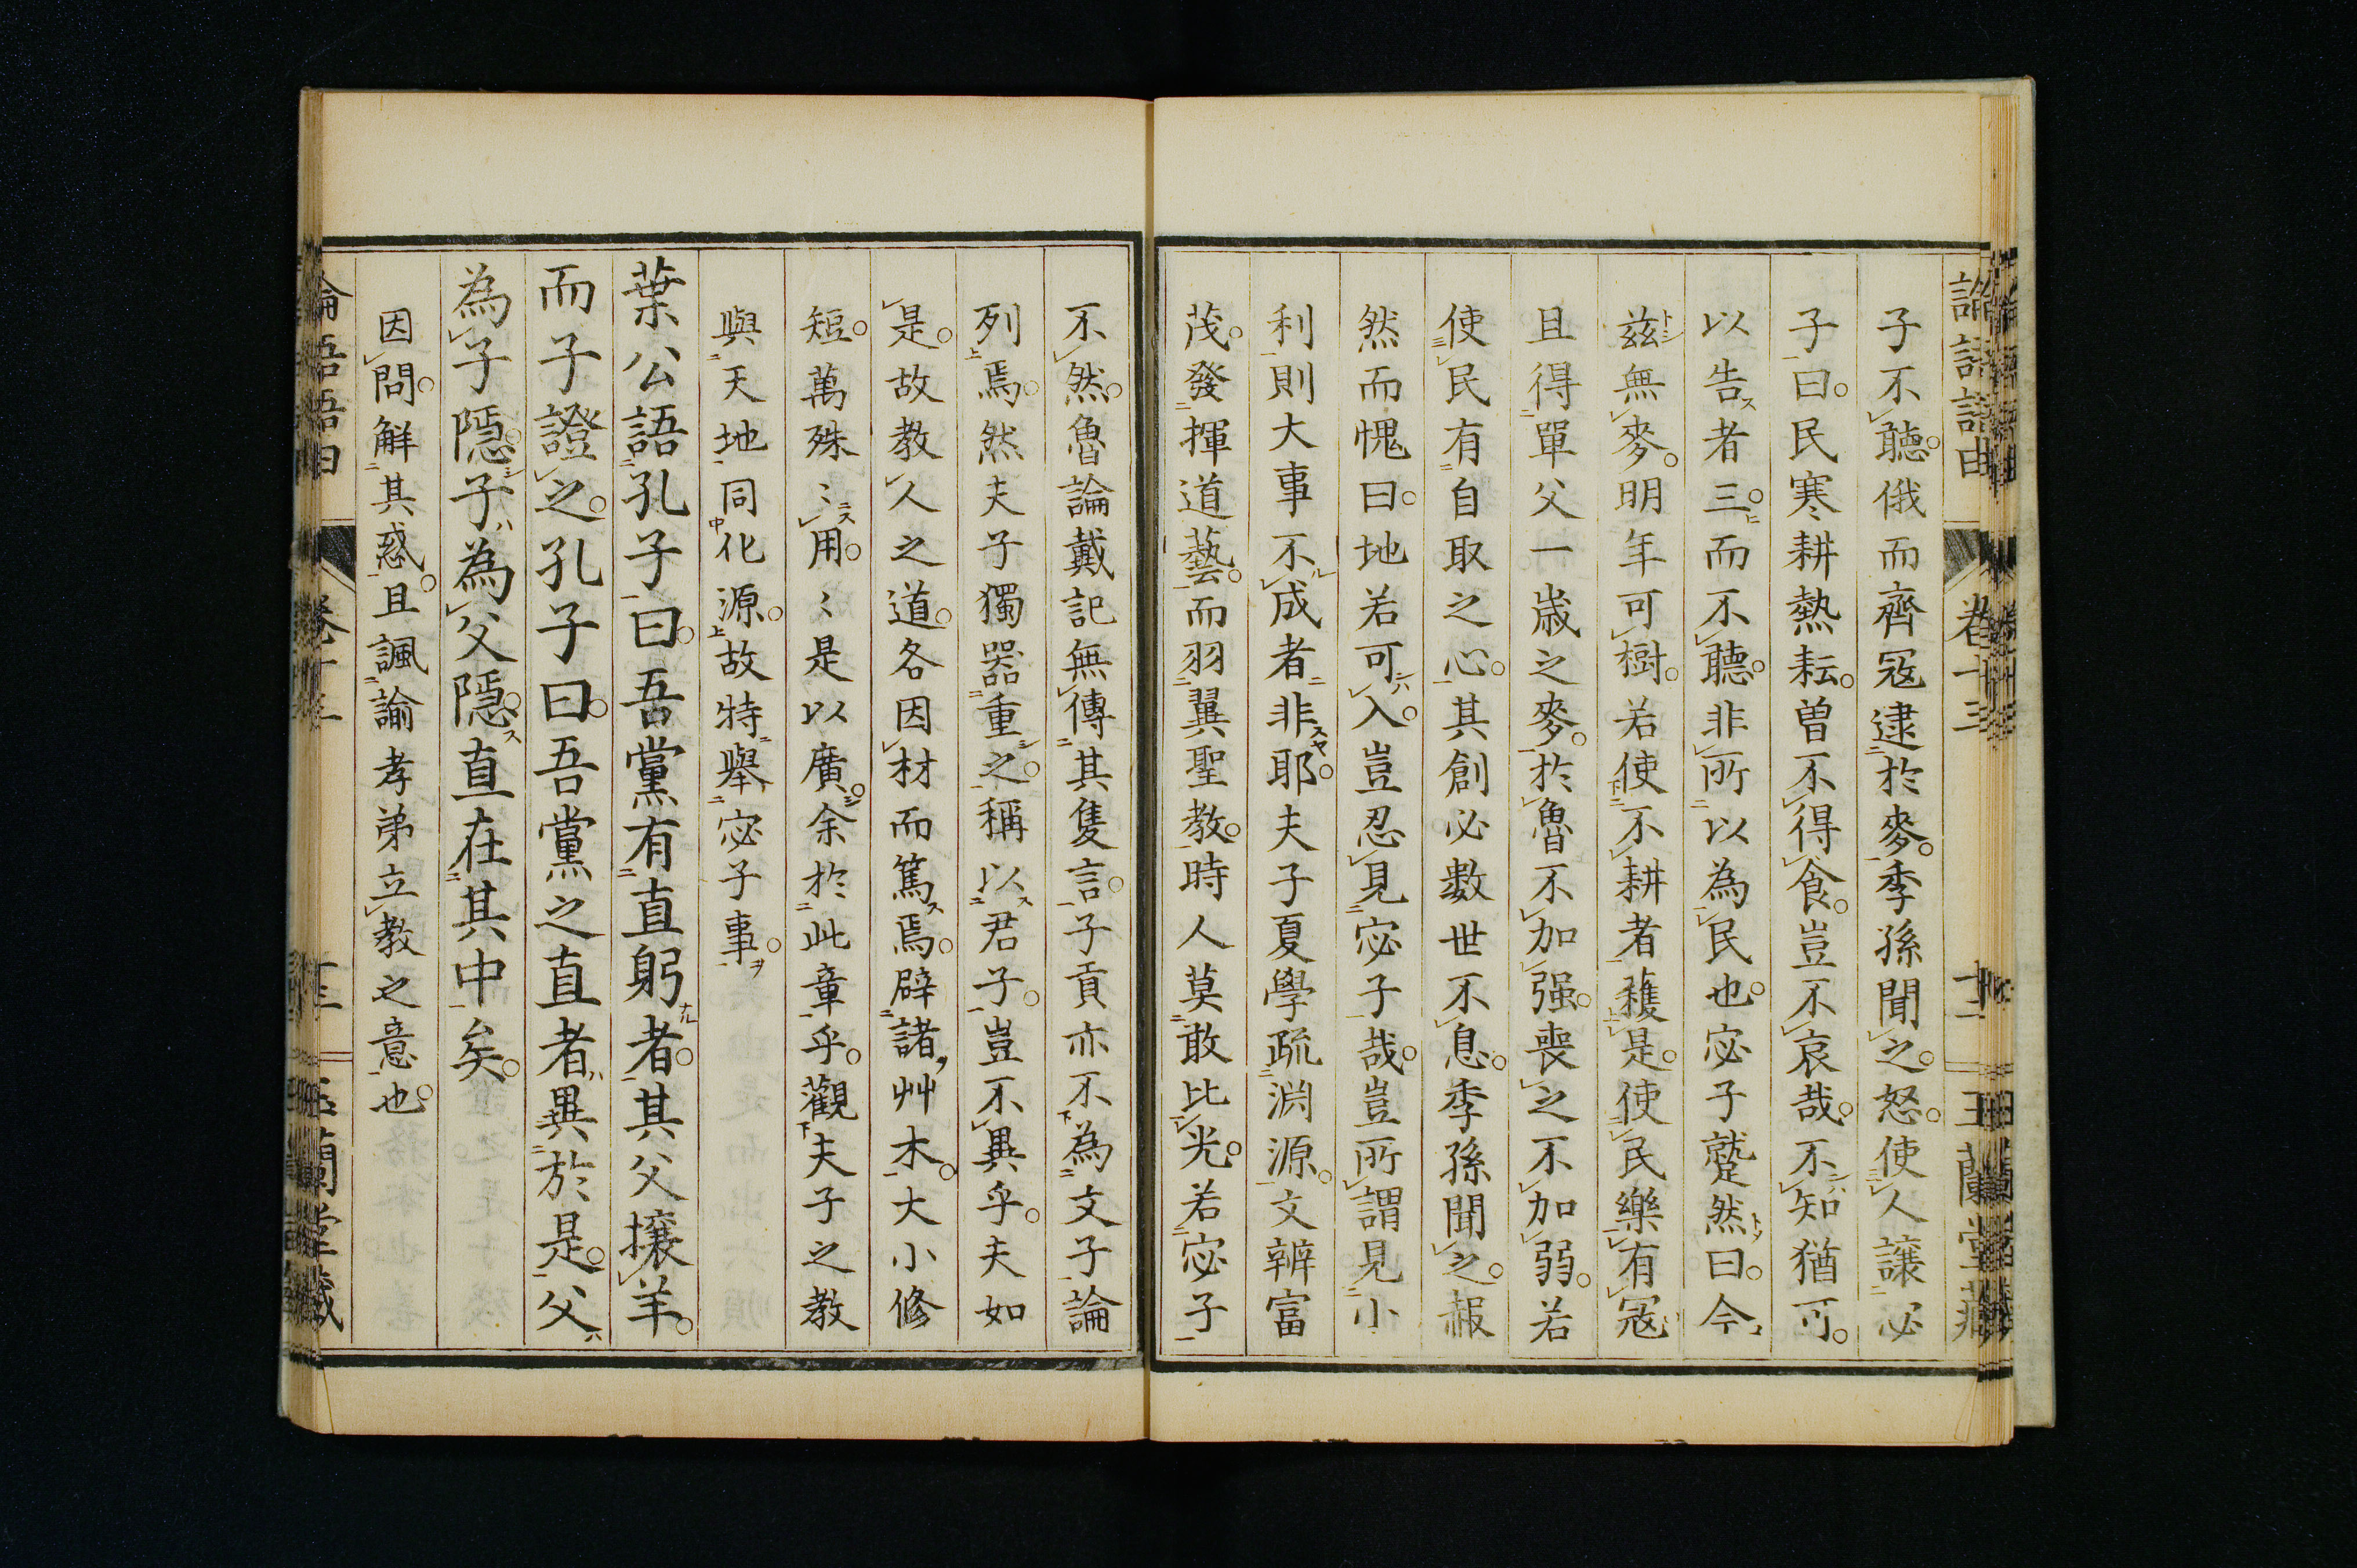 子不聽。俄而齊寇逮於麥。季孫聞之。怒。使人讓宓
子曰。民寒耕熱耘。曽不得食。豈不哀哉。不知猶可。
以告者三。而不聽。非所以為民也。宓子蹵然曰。今
茲無麥。明年可樹。若使不耕者穫。是使民樂有寇
且得單父一歲之麥。於魯不加强。喪之不加弱。若
使民有自取之心。其創必數世不息。季孫聞之。赧
然而愧曰。地若可入。豈忍見宓子哉。豈所謂見小
利則大事不成者非耶。夫子夏學疏淵源。文辨富
茂。發揮道藝。而羽翼聖教。時人莫敢比光。若宓子
不然。魯論戴記無傳其隻言。子貢亦不為文子論
列焉。然夫子獨器重之。稱以君子。豈不異乎。夫如
是。故教人之道。各因材而篤焉。辟諸艸木。大小修
短。萬殊〻用〻。是以廣。余於此章乎。觀夫子之教
與天地同化源。故特舉宓子事。
葉公語孔子曰。吾黨有直躬者。其父攘羊。
而子證之。孔子曰。吾黨之直者異於是。父
為子隱。子為父隱。直在其中矣。
因問。解其惑。且諷諭孝弟立教之意也。
卷十三
十二
玉蘭堂藏